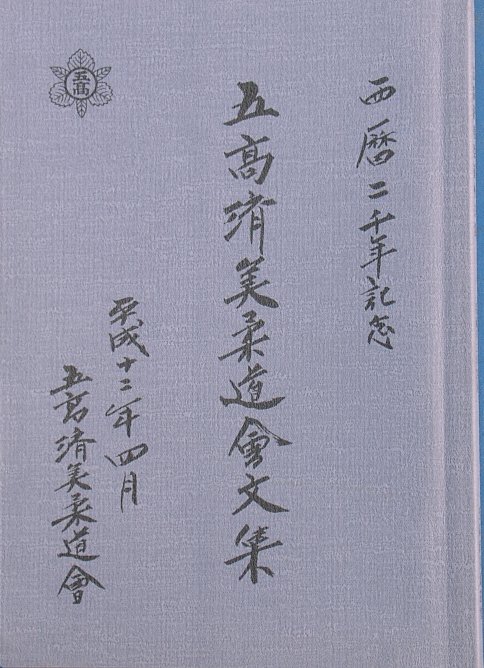 西暦二千年記念
五高済美柔道會文集
平成十二年四月
五高済美柔道會
五髙